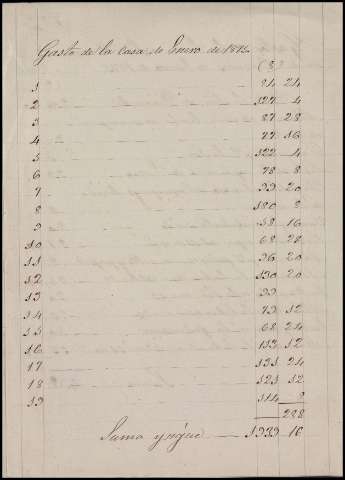 Gasto de la casa de Enero de 1873.
1 84 24
2 127 4
3 87 28
4 77 16
5 122 4
6 78 8
7 99 20
8 180 8
9 58 16
10 68 28
11 96 20
12 130 20
13 99
14 79 12
15 68 24
16 133 12
17 131 24
18 121 12
19 114 8
288
Suma y sigue 1939 16